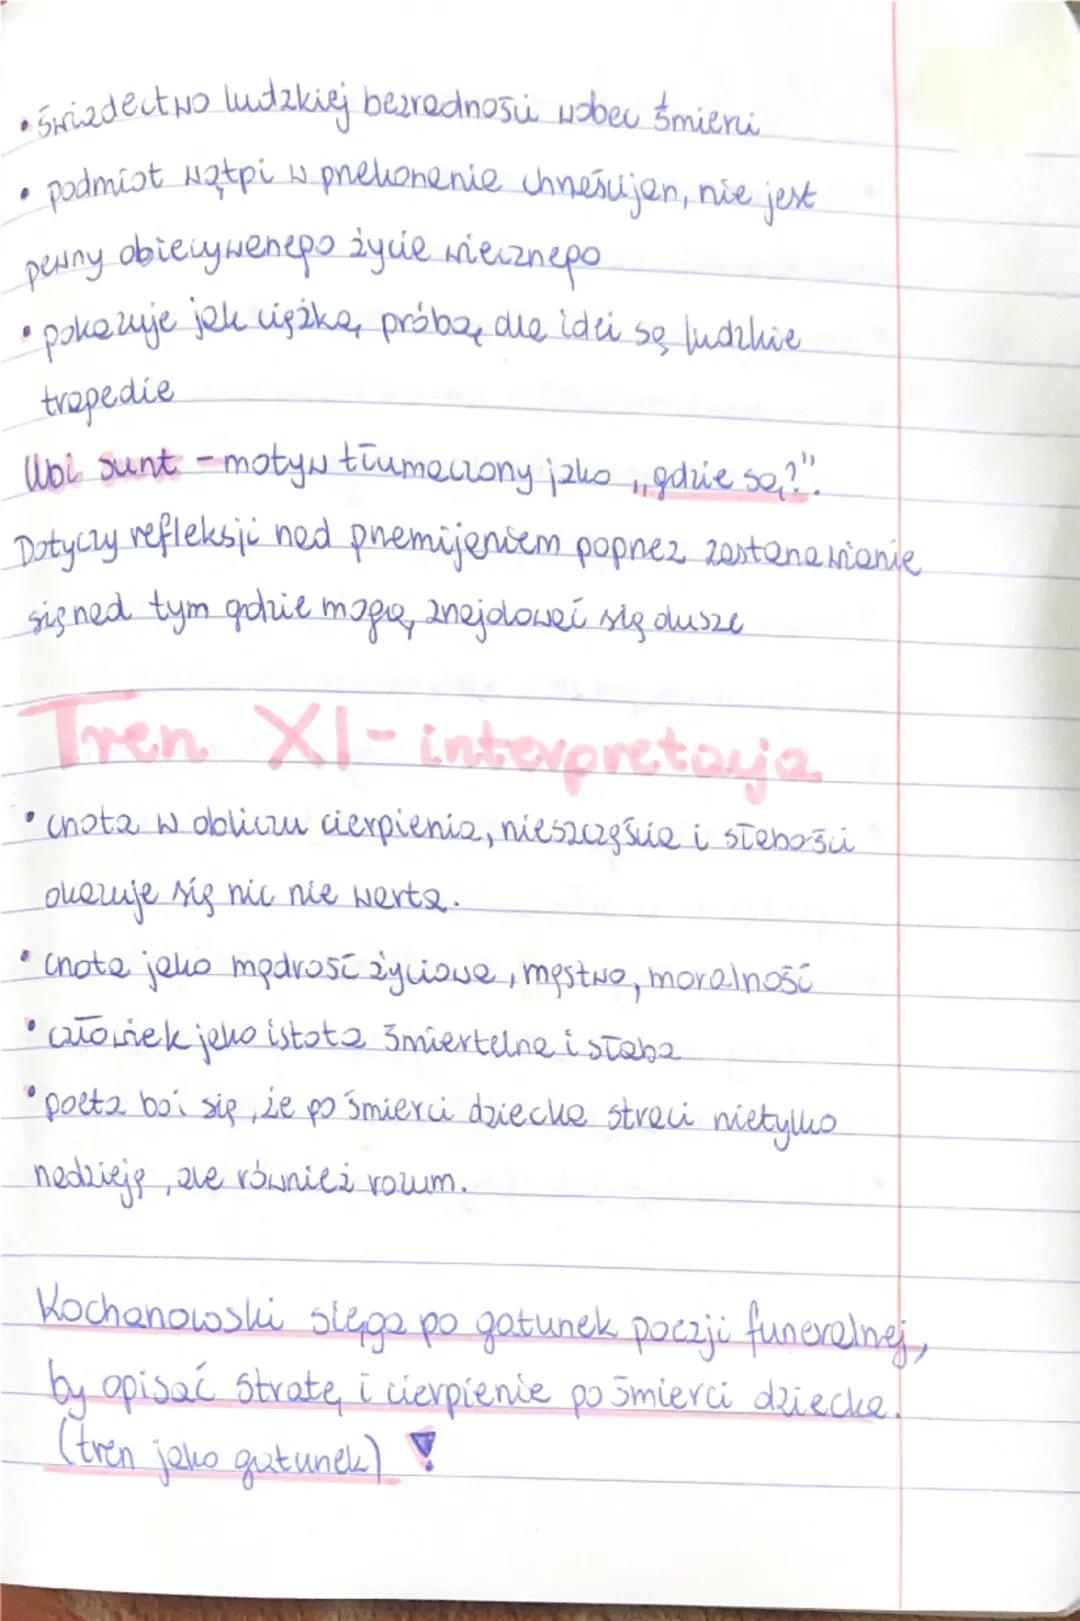 • świadectwo ludzkiej bezradności wobec śmierci
• podmiot wątpi w przekonania chrześcijan, nie jest
pewny obiecywanego życia wiecznego
• pokazuje jak ciężką próbą dla idei są ludzkie
tragedie
Ubi sunt - motyw tłumaczony jako „gdzie są?".
Dotyczy refleksji nad przemijaniem poprzez zastanawianie
się nad tym gdzie mogą znajdować się dusze
Tren XI - interpretacja
• cnota w obliczu cierpienia, nieszczęścia i słabości
okazuje się nic nie warta.
• cnota jako mądrość życiowa, męstwo, moralność
• człowiek jako istota śmiertelna i słaba
• poeta boi się, że po śmierci dziecka straci nietylko
nadzieję, ale również rozum.
Kochanowski sięga po gatunek poezji funeralnej,
by opisać stratę i cierpienie po śmierci dziecka.
(tren jako gatunek) !